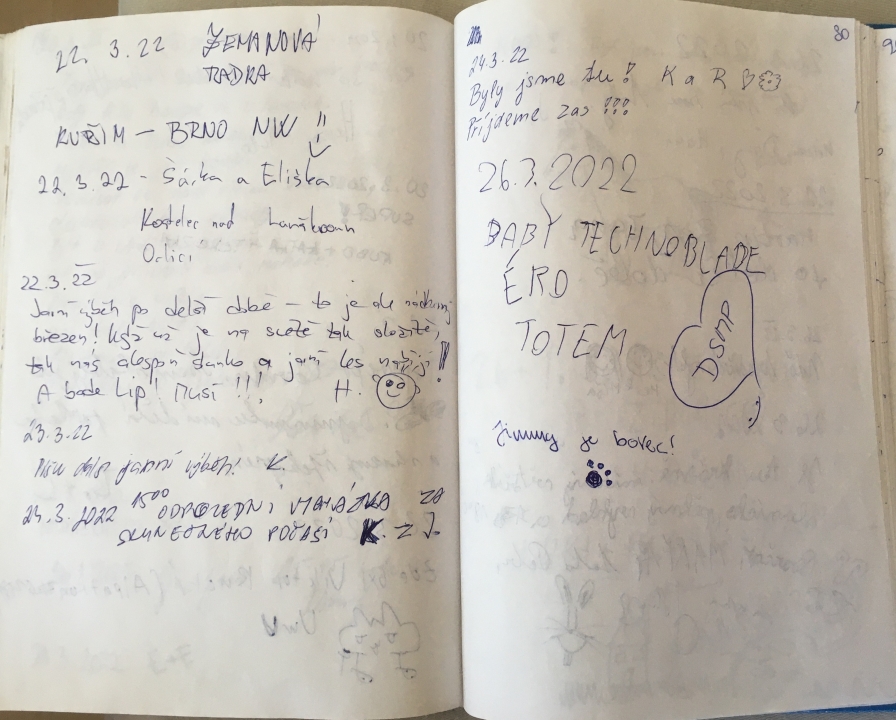 22. 3. 22 ZEMANOVÁ
RADKA
KUŘIM - BRNO NW !!
22. 3. 22 - Šárka a Eliška
Kostelec nad
Orlicí
22.3.22
Jarní výběh po delší době - to je ale nádherný
březen! Když už je na světě tak složitě,
tak nás alespoň a jarní les nabíjí!!
A bude líp! Musí !!! H.
23.3.22
další jarní výběh! K.
24.3.2022 15⁰⁰ ODPOLEDNÍ ZA
SLUNEČNÉHO POČASÍ K. z J.
30
24.3.22
Byly jsme tu! K a R
Přijdeme zas !!!
26.3.2022
BABY TECHNOBLADE
ÉRD
TOTEM
DSMP
;)
je borec!